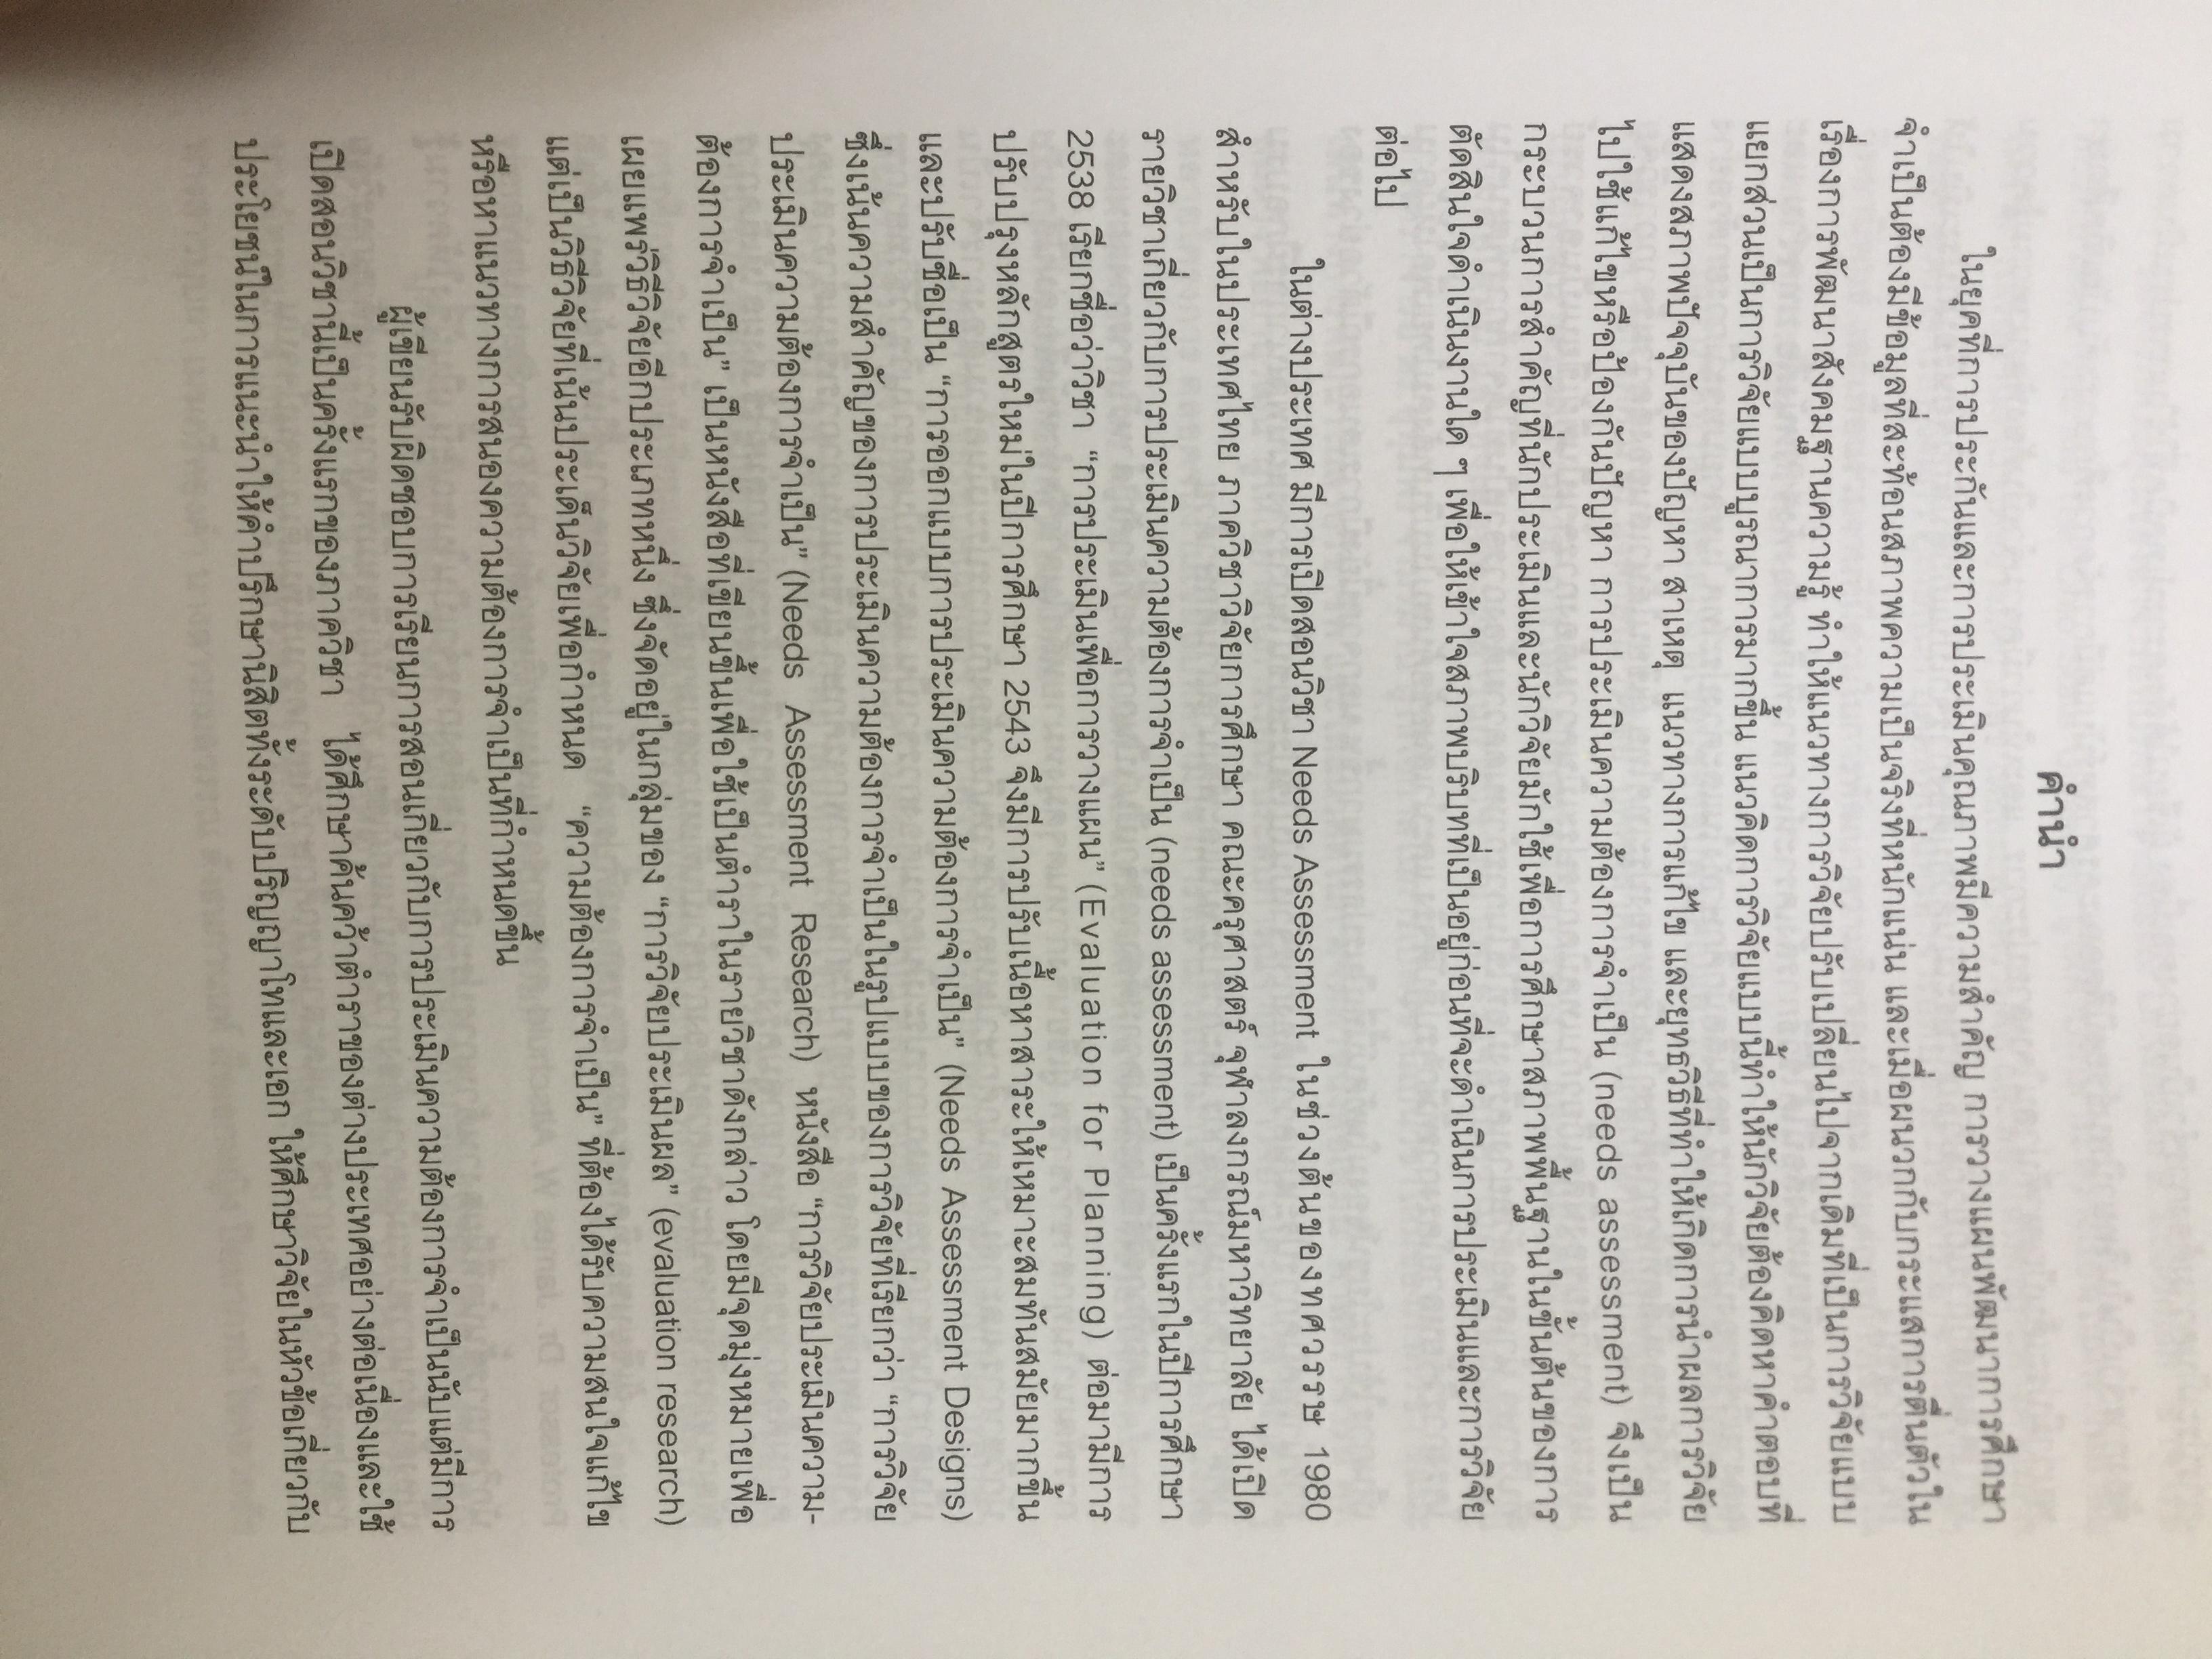 คำนำ
ในยุคที่การประกันและการประเมินคุณภาพมีความสำคัญ การวางแผนพัฒนาการศึกษา
จำเป็นต้องมีข้อมูลที่สะท้อนสภาพความเป็นจริงที่หนักแน่น และเมื่อผนวกกับกระแสการตื่นตัวใน
เรื่องการพัฒนาสังคมฐานความรู้ ทำให้แนวทางการวิจัยปรับเปลี่ยนไปจากเดิมที่เป็นการวิจัยแบบ
แยกส่วนเป็นการวิจัยแบบบูรณาการมากขึ้น แนวคิดการวิจัยแบบนี้ทำให้นักวิจัยต้องคิดหาคำตอบที่
แสดงสภาพปัจจุบันของปัญหา สาเหตุ แนวทางการแก้ไข และยุทธวิธีที่ทำให้เกิดการนำผลการวิจัย
ไปใช้แก้ไขหรือป้องกันปัญหา การประเมินความต้องการจำเป็น (needs assessment) จึงเป็น
กระบวนการสำคัญที่นักประเมินและนักวิจัยมักใช้เพื่อการศึกษาสภาพพื้นฐานในขั้นต้นของการ
ตัดสินใจดำเนินงานใด ๆ เพื่อให้เข้าใจสภาพบริบทที่เป็นอยู่ก่อนที่จะดำเนินการประเมินและการวิจัย
ต่อไป
ในต่างประเทศ มีการเปิดสอนวิชา Needs Assessment ในช่วงต้นของทศวรรษ 1980
สำหรับในประเทศไทย ภาควิชาวิจัยการศึกษา คณะครุศาสตร์ จุฬาลงกรณ์มหาวิทยาลัย ได้เปิด
รายวิชาเกี่ยวกับการประเมินความต้องการจำเป็น (needs assessment) เป็นครั้งแรกในปีการศึกษา
2538 เรียกชื่อว่าวิชา “การประเมินเพื่อการวางแผน” (Evaluation for Planning) ต่อมามีการ
ปรับปรุงหลักสูตรใหม่ในปีการศึกษา 2543 จึงมีการปรับเนื้อหาสาระให้เหมาะสมทันสมัยมากขึ้น
และปรับชื่อเป็น “การออกแบบการประเมินความต้องการจำเป็น” (Needs Assessment Designs)
ซึ่งเน้นความสำคัญของการประเมินความต้องการจำเป็นในรูปแบบของการวิจัยที่เรียกว่า “การวิจัย
ประเมินความต้องการจำเป็น” (Needs Assessment Research) หนังสือ “การวิจัยประเมินความ-
ต้องการจำเป็น” เป็นหนังสือที่เขียนขึ้นเพื่อใช้เป็นตำราในรายวิชาดังกล่าว โดยมีจุดมุ่งหมายเพื่อ
เผยแพร่วิธีวิจัยอีกประเภทหนึ่ง ซึ่งจัดอยู่ในกลุ่มของ “การวิจัยประเมินผล” (evaluation research)
แต่เป็นวิธีวิจัยที่เน้นประเด็นวิจัยเพื่อกำหนด “ความต้องการจำเป็น” ที่ต้องได้รับความสนใจแก้ไข
หรือหาแนวทางการสนองความต้องการจำเป็นที่กำหนดขึ้น
ผู้เขียนรับผิดชอบการเรียนการสอนเกี่ยวกับการประเมินความต้องการจำเป็นนับแต่มีการ
เปิดสอนวิชานี้เป็นครั้งแรกของภาควิชา ได้ศึกษาค้นคว้าตำราของต่างประเทศอย่างต่อเนื่องและใช้
ประโยชน์ในการแนะนำให้คำปรึกษานิสิตทั้งระดับปริญญาโทและเอก ให้ศึกษาวิจัยในหัวข้อเกี่ยวกับ